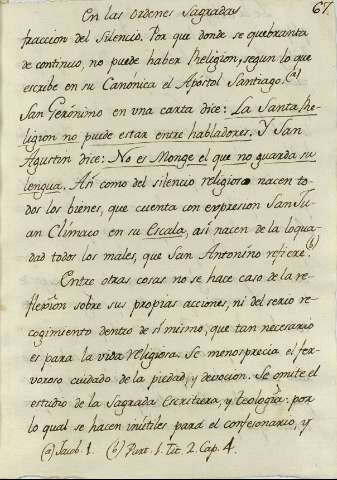 En las Ordenes Sagradas 67.
fraccion del Silencio. Por que donde se quebranta
de continuo, no puede haber Religion, segun lo que
escribe en su Canónica el Apóstol Santiago. (a)
San Gerónimo en una carta dice: La Santa Re-
ligion no puede estar entre habladores. Y San
Agustin dice: No es Monge el que no guarda su
lengua. Asi como del silencio religioso nacen to-
dos los bienes, que cuenta con expresion San Ju-
an Clímaco en su Escala, asi nacen de la loqua-
dad todos los males, que San Antonino refiere. (b)
Entre otras cosas no se hace caso de la re-
flexîon sobre sus propias acciones, ni del serio re-
cogimiento dentro de sí mismo, que tan necesario
es para la vida religiosa. Se menosprecia el fer-
voroso cuidado de la piedad, y devocion. Se omite el
estudio de la Sagrada Escritura, y teología: por
lo qual se hacen inútiles para el confesonario, y
(a) Jacob. 1. (b) Part. 1. Tit. 2. Cap. 4.